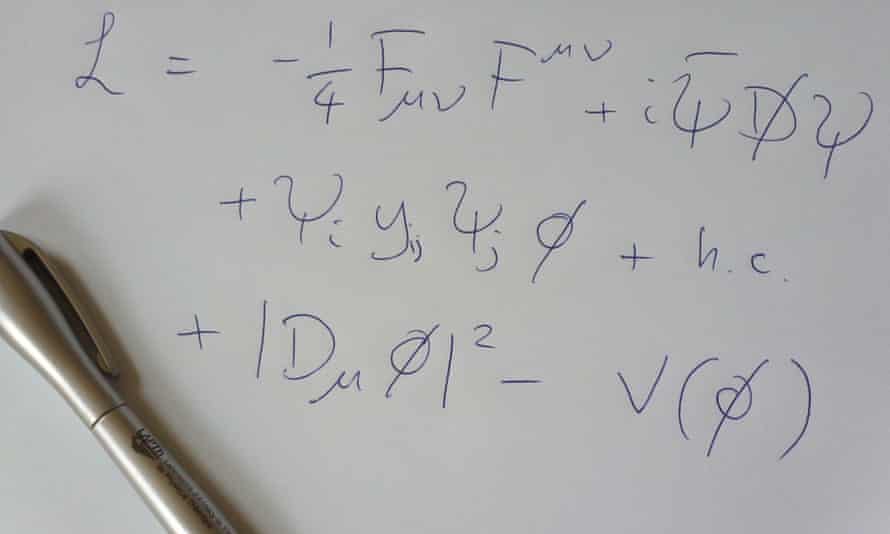 ℒ = -1/4 F_μν F^μν + i ψ̄ D̸ ψ
+ ψ_i y_ij ψ_j φ + h.c.
+ |D_μ φ|² - V(φ)